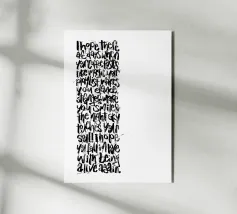 I hope there
are days when
your coffee tastes
like magic, your
playlist makes
you dance,
strangers make
you smile
the night sky
touches your
soul. I hope
you fall in love
with being
alive again.